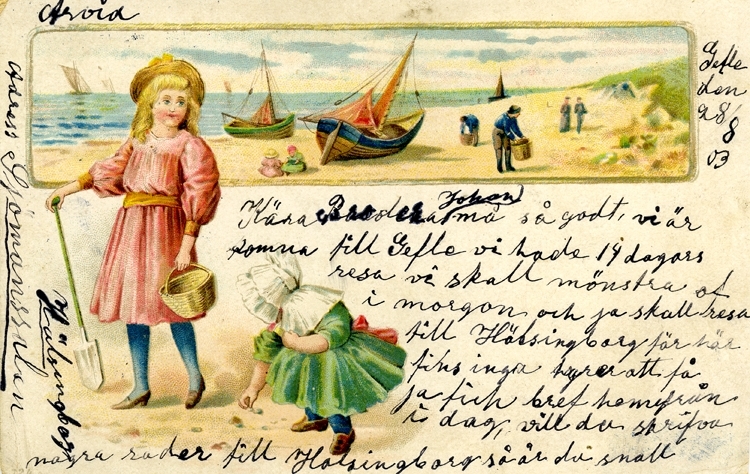 Gefle
den
28/8
03
Kära Broder Johan må så godt, vi är
komna till Gefle vi hade 14 dagars
resa vi skall mönstra af
i morgon och ja skall resa
till Hälsingborg för här
fins inga hyrer att få
ja fick bref hemifrån
i dag, vill du skrifva
några rader till Hälsingborg så är du snäll
Arvid
Adress Sjömanssilen
Hälsingborg